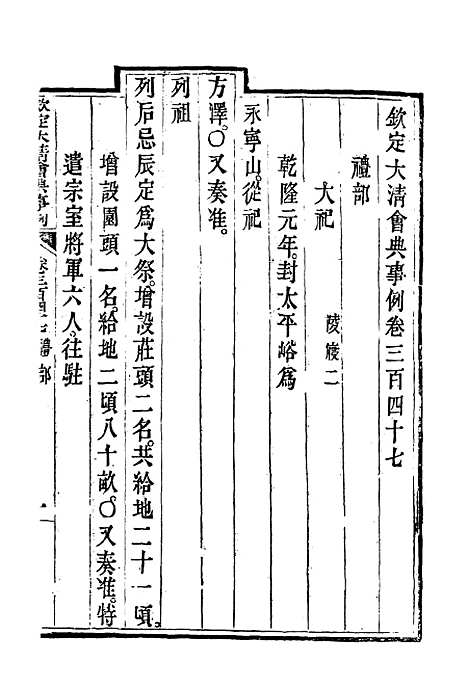 欽定大清會典事例卷三百四十七
禮部
大祀 陵寢二
乾隆元年。封太平峪爲
永寧山。從祀
方澤。○又奏准。
列祖
列后忌辰定爲大祭。增設莊頭二名。共給地二十一頃。
增設園頭一名。給地二頃八十畝。○又奏准。特
遣宗室將軍六人。往駐
欽定大清會典事例 卷三百四十七 禮部 一